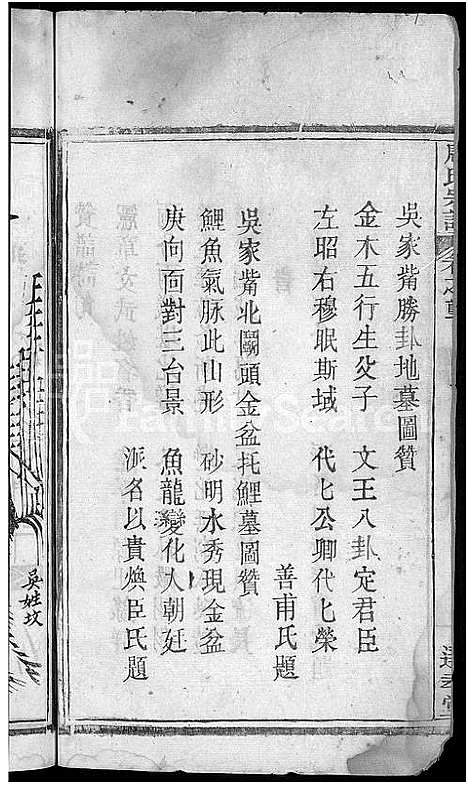 吳家觜勝卦地墓圖贊
金木五行生父子　文王八卦定君臣
左昭右穆眠斯域　代七公卿代七榮
善甫氏題
吳家觜北關頭金盆托鯉墓圖贊
鯉魚氣脉此山形　砂明水秀現金盆
庚向面對三台景　魚龍變化人朝廷
派名以貴煥臣氏題
吳姓坟